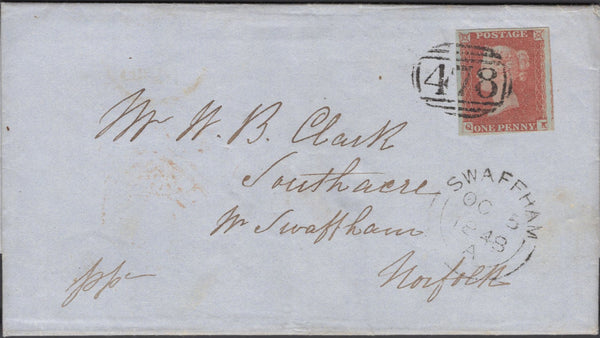 POSTAGE
478
Q
ONE PENNY
Mr W. B. Clark
Southacre
Nr Swaffham
Norfolk
pp
SWAFFHAM
OC 5
1848
A